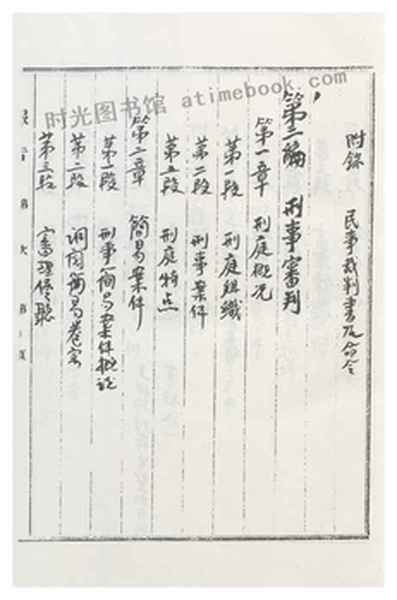 时光图书馆 atimebook.com
附錄 民事裁判書及命令
第二編 刑事審判
第一章 刑庭概况
第一段 刑庭組織
第二段 刑事案件
第三段 刑庭特点
第二章 簡易案件
第一段 刑事簡易案件概説
第二段 調閲簡易卷宗
第三段 審理修聽
目次